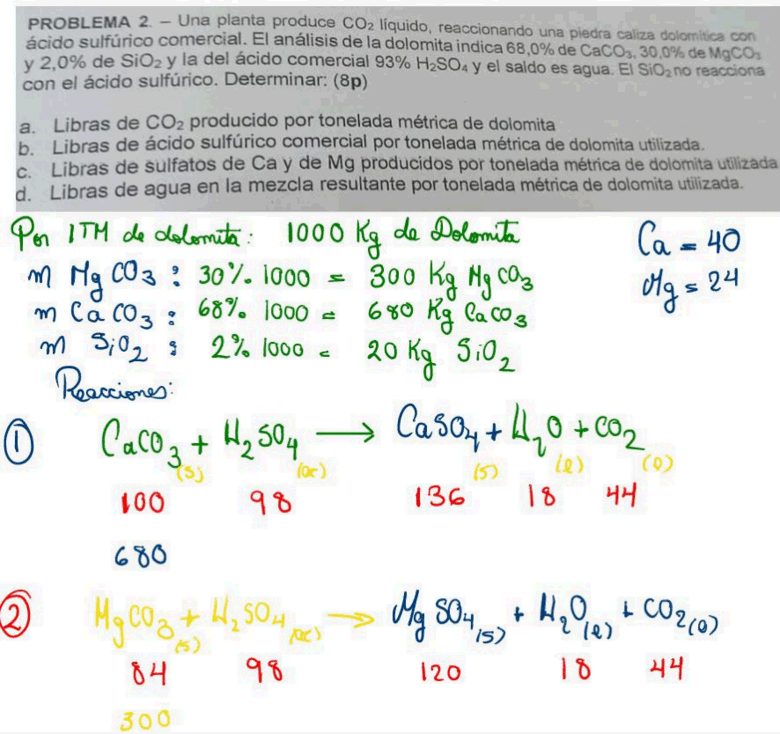 PROBLEMA 2. – Una planta produce CO₂ líquido, reaccionando una piedra caliza dolomítica con
ácido sulfúrico comercial. El análisis de la dolomita indica 68,0% de CaCO₃, 30,0% de MgCO₃
y 2,0% de SiO₂ y la del ácido comercial 93% H₂SO₄ y el saldo es agua. El SiO₂ no reacciona
con el ácido sulfúrico. Determinar: (8p)
a. Libras de CO₂ producido por tonelada métrica de dolomita
b. Libras de ácido sulfúrico comercial por tonelada métrica de dolomita utilizada.
c. Libras de sulfatos de Ca y de Mg producidos por tonelada métrica de dolomita utilizada
d. Libras de agua en la mezcla resultante por tonelada métrica de dolomita utilizada.
Por 1TM de dolomita: 1000 Kg de Dolomita
Ca = 40
m MgCO₃ : 30% 1000 = 300 Kg MgCO₃
Mg = 24
m CaCO₃ : 68% 1000 = 680 Kg CaCO₃
m SiO₂ : 2% 1000 = 20 Kg SiO₂
Reacciones:
① CaCO₃(s) + H₂SO₄(ac) → CaSO₄(s) + H₂O(l) + CO₂(l)
100 98 136 18 44
680
② MgCO₃(s) + H₂SO₄(ac) → MgSO₄(s) + H₂O(l) + CO₂(l)
84 98 120 18 44
300